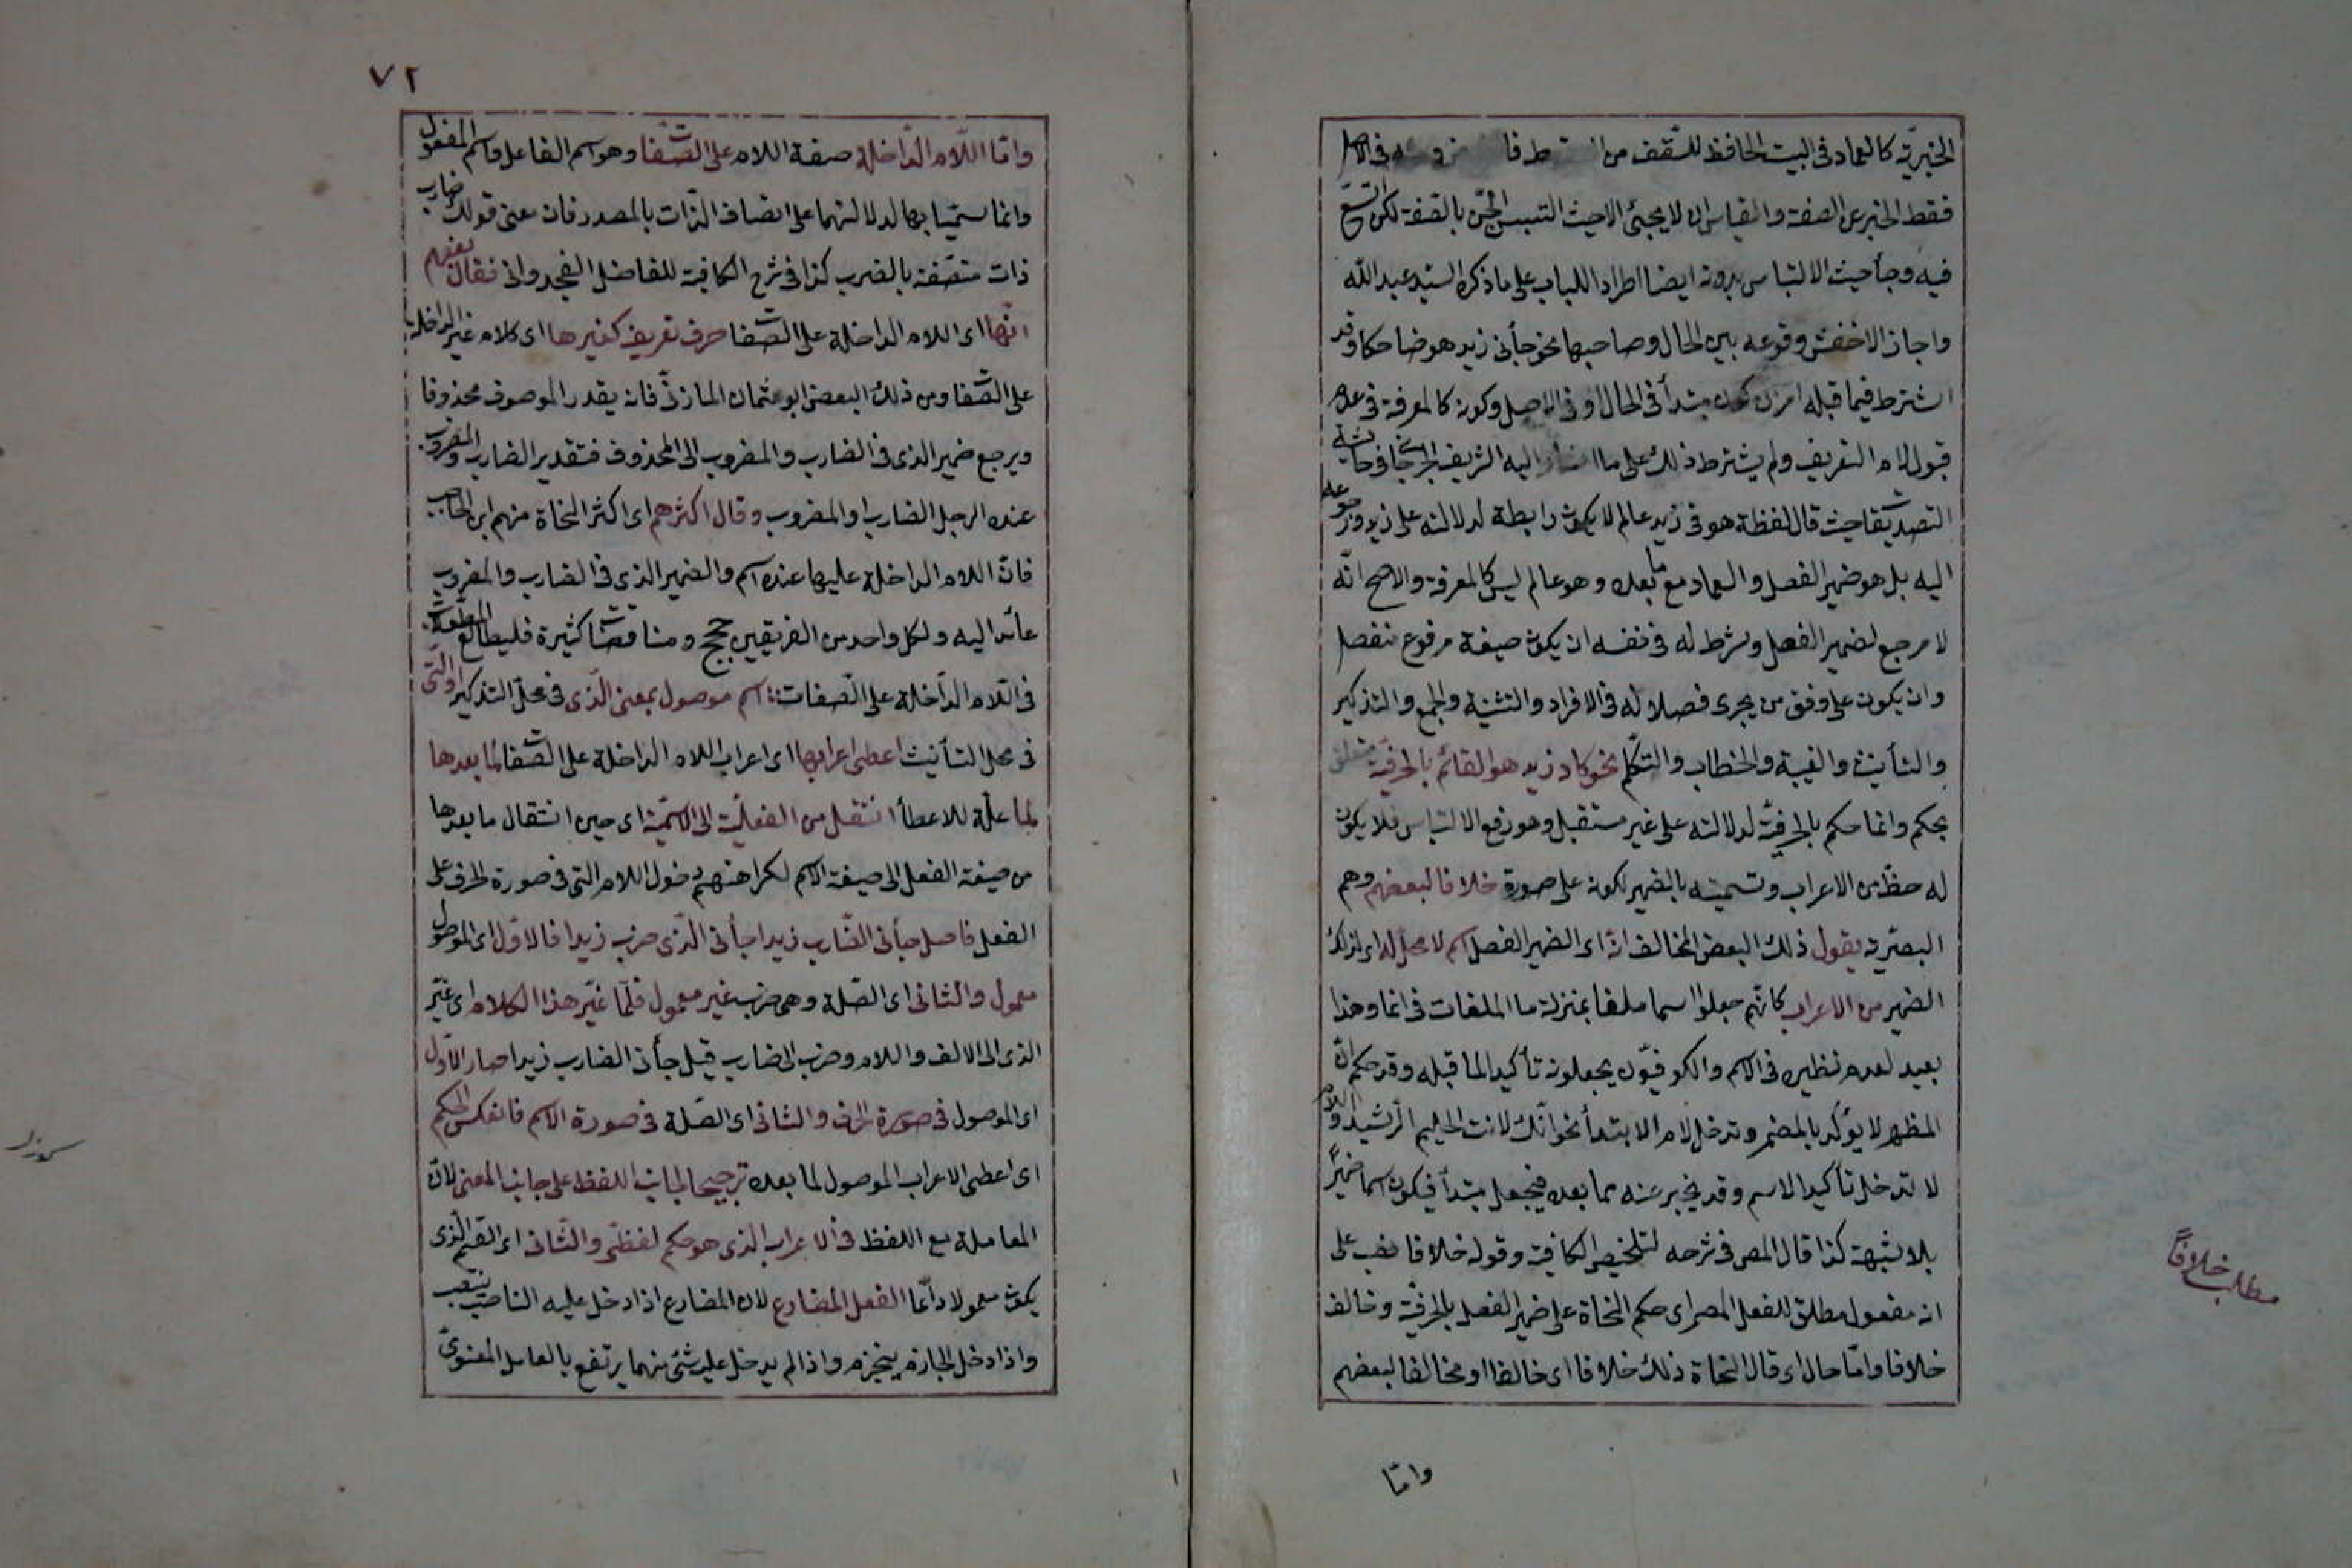 الخبريّة كالعماد فى البيت الحافظ للسّقف من فى الاصل
فقط الخبر عن الصفة والقياس ان لا يجئ الا حيث التبس الخبر بالصفة لكن اتسع
فيه وجاء حيث الالتباس بدونه ايضا اطراد اللباب على ما ذكره السيد عبد الله
واجاز الاخفش وقوعه بين الحال وصاحبها نحو جاءنى زيد هو ضاحكا وقد
اشترط فيما قبله امران كونه مبتدأ فى الحال او فى الاصل وكونه كالمعرفة فى عدم
قبول لام التعريف ولم يشترط ذلك على ما اشار اليه الشريف الجرجانى فى حاشية
التصديقات حيث قال لفظة هو فى زيد عالم لا يكون رابطة لدلالته على زيد ورجوعه
اليه بل هو ضمير الفصل والعماد مع ما بعده وهو عالم ليس كالمعرفة والاصح انّه
لا مرجع لضمير الفصل وشرط له فى نفسه ان يكون صيغة مرفوع منفصل
وان يكون على وفق من يجرى فصلا له فى الافراد والتثنية والجمع والتذكير
والتأنيث والغيبة والخطاب والتكلم نحو كان زيد هو القائم بالحرفيّة متعلق
بحكم وانما حكم بالحرفيّة لدلالته على غير مستقبل وهو رفع الالتباس فلا يكون
له حظّ من الاعراب وتسميته بالضمير لكونه على صورة خلافا لبعضهم وهم
البصريّة يقول ذلك البعض المخالف انّه اى الضمير الفصل اسم لا محلّ له اى لذلك
الضمير من الاعراب كانّهم جعلوا اسما ملغا بمنزلة ما الملغات فى انما وهذا
بعيد لعدم نظيره فى الاسم والكوفيّون يجعلونه تأكيدا لما قبله وقد حكم انّ
المظهر لا يؤكّد بالمضمر وتدخل لام الابتدأ نحو انّك لانت الحليم الرّشيد واللام
لا تدخل تأكيد الاسم وقد يخبر عنه بما بعده فيجعل مبتدأ فيكون اسما ضميرًا
بلا شبهة كذا قال المص فى شرحه لتلخيص الكافية وقوله خلافا نصب على
انه مفعول مطلق للفعل المص اى حكم النحاة على ضمير الفصل بالحرفيّة وخالف
خلافا وامّا حال اى قال النحاة ذلك خلافا اى خالفا او مخالفا لبعضهم
وامّا
مطلب خلافاً
٧٢
وامّا اللّام الدّاخلة صفة اللام على الصّفات وهو اسم الفاعل واسم المفعول
وانما سميّا بها لدلالتهما على اتصاف الذّات بالمصدر فان معنى قولك ضارب
ذات متصّفة بالضرب كذا فى شرح الكافية للفاضل الفجدوانى فقال بعضهم
انّها اى اللام الداخلة على الصّفات حرف تعريف كغيرها اى كلام غير الداخلة
على الصّفات ومن ذلك البعض ابو عثمان المازنىّ فانه يقدر الموصوف محذوفا
ويرجع ضمير الذى فى الضارب والمضروب الى المحذوف فتقدير الضارب والمضروب
عنده الرجل الضارب او المضروب وقال اكثرهم اى اكثر النحاة منهم ابن الحاجب
فانّ اللام الداخلة عليها عنده اسم والضمير الذى فى الضارب والمضروب
عائد اليه ولكل واحد من الفريقين حجج ومناقضات كثيرة فليطالع المطولات
فى اللام الدّاخلة على الصّفات اسم موصول بمعنى الّذى فى محلّ التذكير او الّتى
فى محل التأنيث اعطى اعرابها اى اعراب اللام الداخلة على الصّفات لما بعدها
لما علّة للاعطاء انتقل من الفعليّة الى الاسميّة اى حين انتقال ما بعدها
من صيغة الفعل الى صيغة الاسم لكراهتهم دخول اللام التى فى صورة الحرف على
الفعل فاصل جاءنى الضّارب زيدا جاءنى الّذى ضرب زيدا فالاوّل اى الموصول
معمول والثانى اى الصّلة وهى ضرب غير معمول فلمّا غيّر هذا الكلام اى غيّر
الذى الى الالف واللام وضرب الى ضارب قيل جاءنى الضارب زيدا صار الاّول
اى الموصول فى صورة الحرف والثانى اى الصّلة فى صورة الاسم فانعكس الحكم
اى اعطى الاعراب الموصول لما بعده ترجيحا لجانب اللفظ على جانب المعنى لانّ
المعاملة مع اللفظ فى الاعراب الذى هو حكم لفظىّ والثّانى اى القسم الّذى
يكون معمولا دائما الفعل المضارع لان المضارع اذا دخل عليه الناصب ينتصب
واذا دخل الجازم ينجزم واذا لم يدخل عليه شئ منهما يرتفع بالعامل المعنوىّ